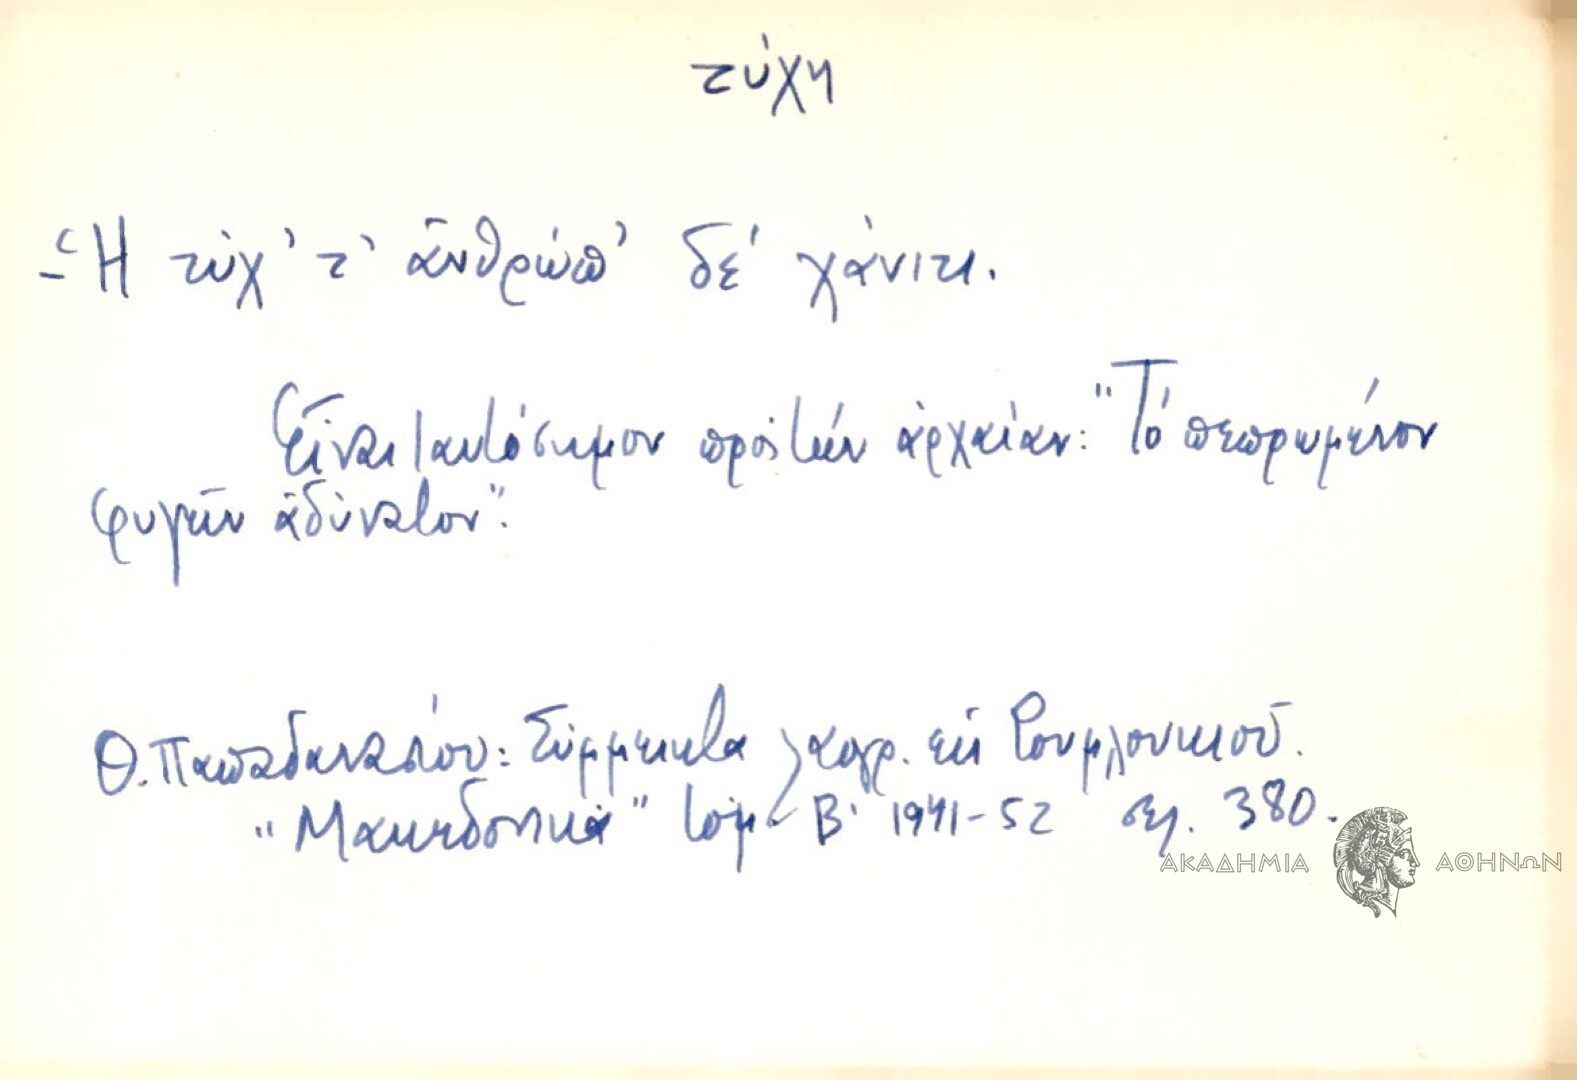 τύχη
- Ἡ τύχ' τ' ἀνθρώπ' δέ χάνιτι.
Εἶναι ταυτόσημον πρός τήν ἀρχαίαν: "Τό πεπρωμένον
φυγεῖν ἀδύνατον".
Θ. Παπαθανασίου: Σύμμεικτα λαογρ. ἐκ Ρουμλουκιοῦ.
"Μακεδονικά" τόμ. Β' 1941-52 σελ. 380.
ΑΚΑΔΗΜΙΑ ΑΘΗΝΩΝ